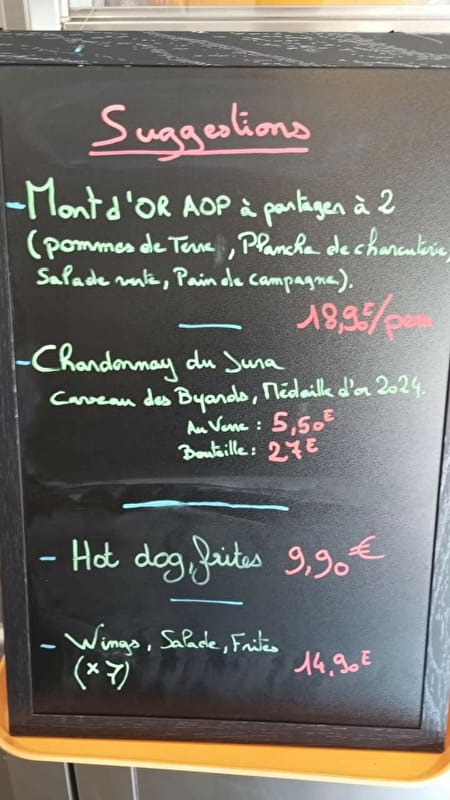 Suggestions
- Mont d'OR AOP à partager à 2
(pommes de Terre, Planche de charcuterie,
Salade verte, Pain de campagne).
18,90€/pers
- Chardonnay du Jura
Caveau des Byards, Médaille d'or 2024.
Au Verre : 5,50€
Bouteille : 27€
- Hot dog, frites 9,90€
- Wings, Salade, Frites
(x7) 14,90€